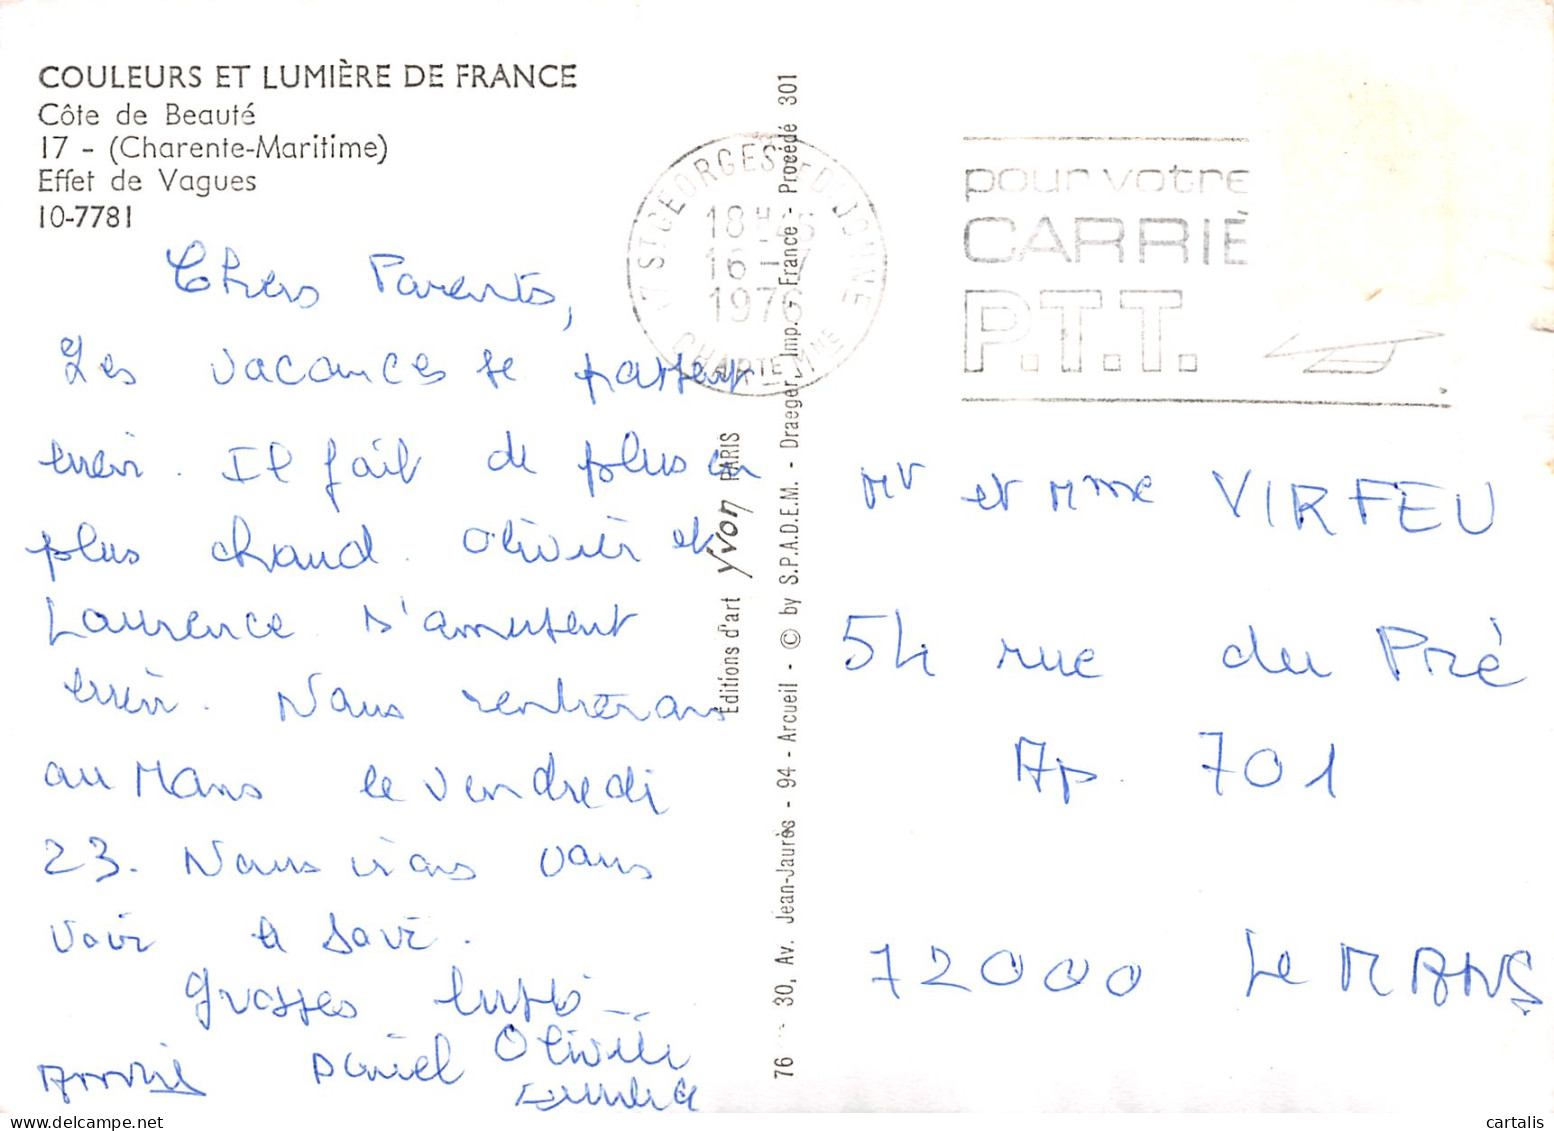 COULEURS ET LUMIÈRE DE FRANCE
Côte de Beauté
17 - (Charente-Maritime)
Effet de Vagues
10-7781
Chers Parents,
Les vacances se passent
bien. Il fait de plus en
plus chaud. Olivier et
Laurence s'amusent
bien. Nous rentrerons
au Mans le vendredi
23. Nous irons vous
voir le soir.
Grosses bises
Annie Daniel Olivier
Laurence
Editions d'art Yvon PARIS
76 - 30, Av. Jean-Jaurès - 94 - Arcueil - © by S.P.A.D.E.M. - Draeger, Imp. - France - Procédé 301
17 ST GEORGES DE DIDONNE
18H45
16-7
1976
CHARTE MME
pour votre
CARRIÈ
P.T.T.
Mr et Mme VIRFEU
54 rue du Pré
Ap. 701
72000 Le MANS
delcampe.net
cartalis